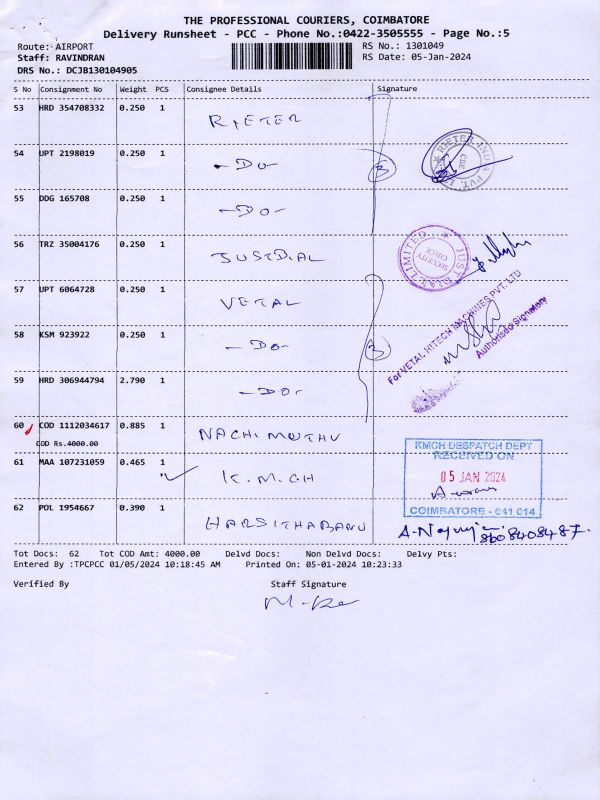 THE PROFESSIONAL COURIERS, COIMBATORE
Delivery Runsheet - PCC - Phone No.:0422-3505555 - Page No.:5
Route: AIRPORT RS No.: 1301049
Staff: RAVINDRAN RS Date: 05-Jan-2024
DRS No.: DCJB130104905
S No Consignment No Weight PCS Consignee Details Signature
53 HRD 354708332 0.250 1 RIETER
54 UPT 2198019 0.250 1 -DO-
55 DDG 165708 0.250 1 -DO-
56 TRZ 35004176 0.250 1 JUSTDIAL
57 UPT 6064728 0.250 1 VETAL
58 KSM 923922 0.250 1 -DO-
59 HRD 306944794 2.790 1 -DO-
60 COD 1112034617 0.885 1 NACHIMUTHU
COD Rs.4000.00
61 MAA 107231059 0.465 1 K.M.CH
62 POL 1954667 0.390 1 HARSITHABANU
3
3
RIETER INDIA PVT. CBE
JUST DIAL LIMITED
SECURITY CHECK
For VETAL HITECH MACHINES PVT. LTD
Authorised Signatory
KMCH DESPATCH DEPT
RECEIVED ON
05 JAN 2024
COIMBATORE - 641 014
8608408487.
Tot Docs: 62 Tot COD Amt: 4000.00 Delvd Docs: Non Delvd Docs: Delvy Pts:
Entered By :TPCPCC 01/05/2024 10:18:45 AM Printed On: 05-01-2024 10:23:33
Verified By Staff Signature